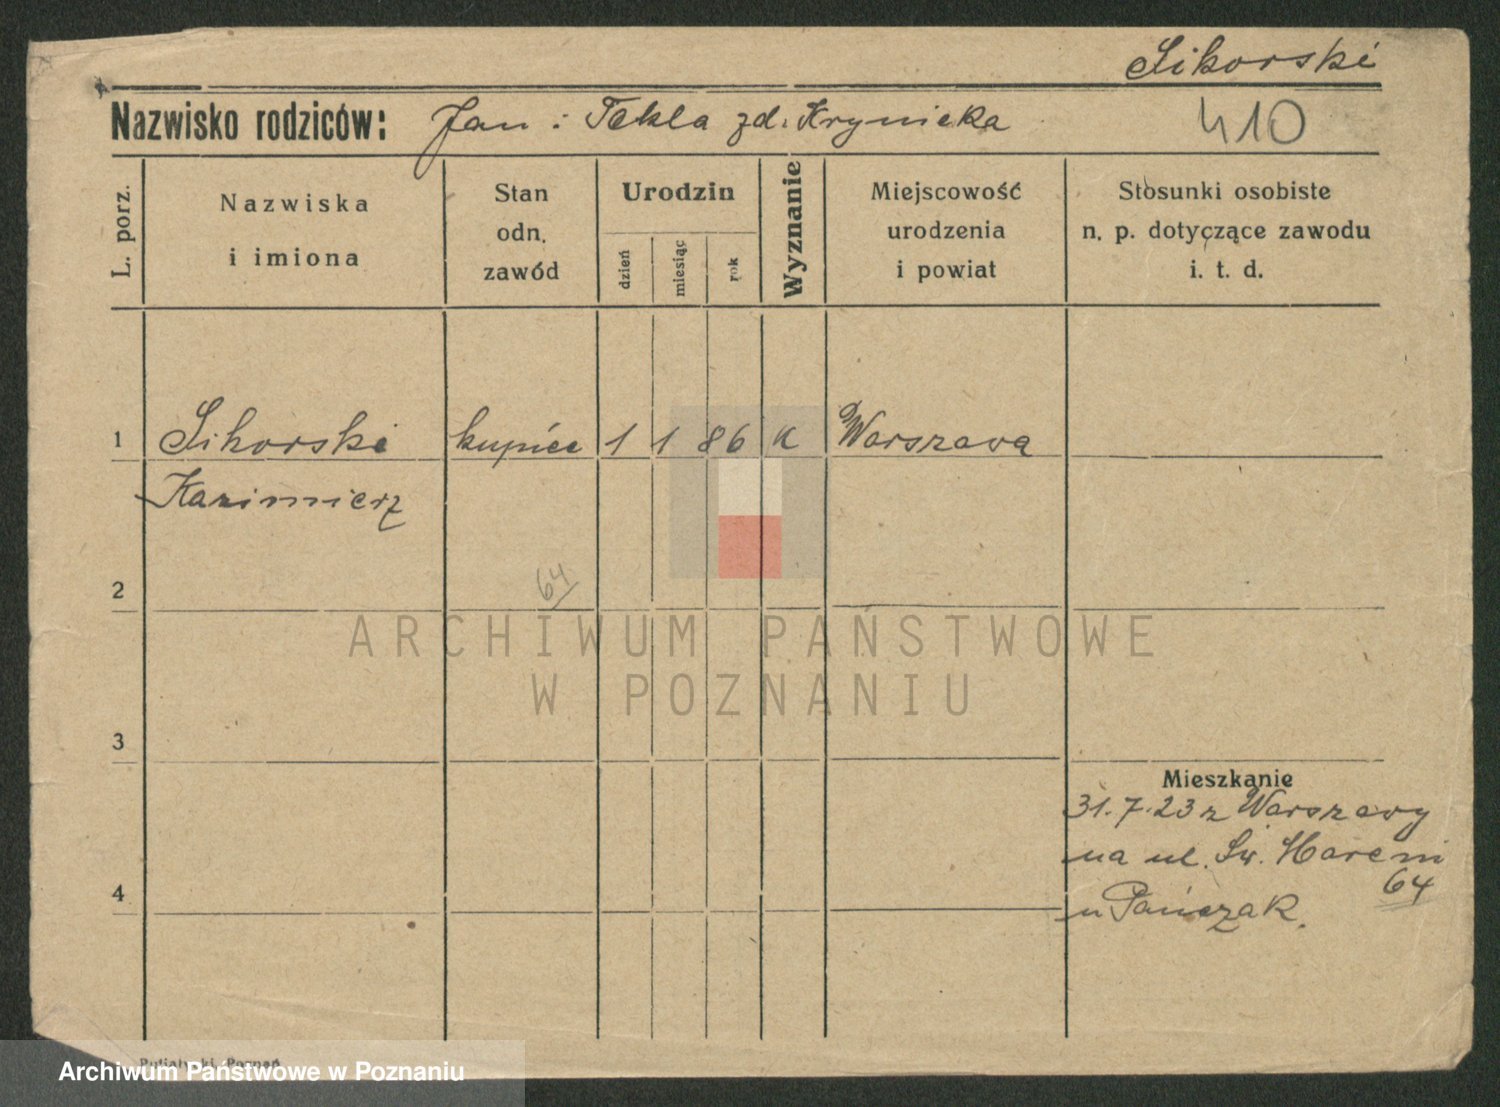 Sikorski
Nazwisko rodziców: Jan i Tekla zd. Krynicka
410
L. porz.
Nazwiska
i imiona
Stan
odn.
zawód
Urodzin
dzień
miesiąc
rok
Wyznanie
Miejscowość
urodzenia
i powiat
Stosunki osobiste
n. p. dotyczące zawodu
i. t. d.
1 Sikorski kupiec 1 1 86 K Warszawa
Kazimierz
2
64
ARCHIWUM PAŃSTWOWE
W POZNANIU
3
Mieszkanie
31.7.23 z Warszawy
na ul. Św. Marcin
4
64
u Pańczak.
Putiatycki, Poznań
Archiwum Państwowe w Poznaniu